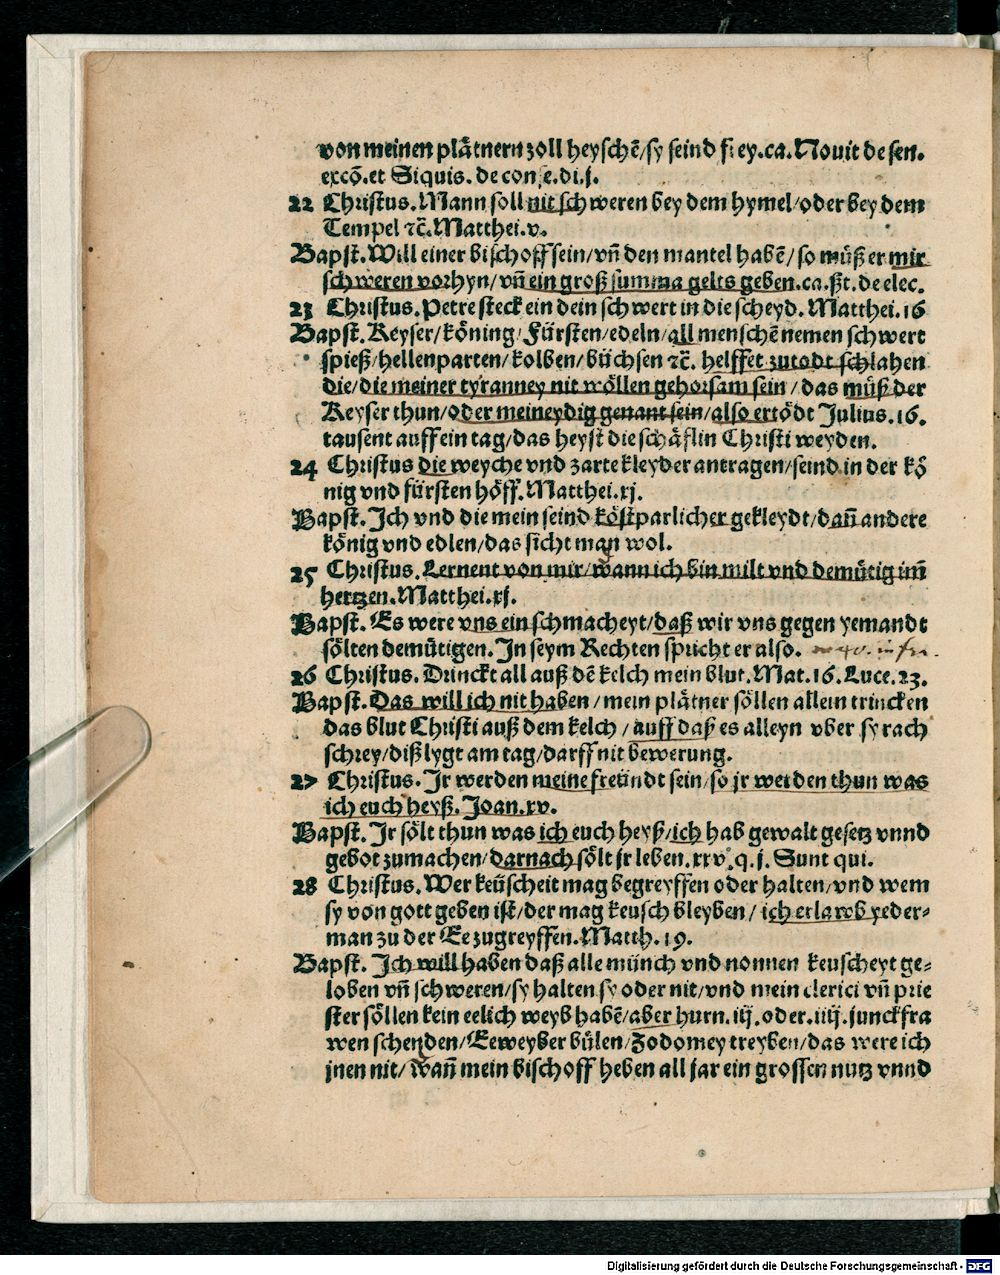 von meinen plåtnern zoll heyschē/sy seind frey.ca.Nouit de sen.
excō.et Siquis. de conse.di.j.
22 Christus.Mann soll nit schweren bey dem hymel/oder bey dem
Tempel ⁊c̄.Matthei.v.
Bapst.Will einer bischoff sein/vñ den mantel habē/so můß er mir
schweren vorhyn/vñ ein groß summa gelts geben.ca.ßt.de elec.
23 Christus.Petre steck ein dein schwert in die scheyd. Matthei.16
Bapst.Keyser/kôning/Fürsten/edeln/all menschē nemen schwert
spieß/hellenparten/kolben/büchsen ⁊c̄. helffet zutodt schlahen
die/die meiner tyranney nit wôllen gehorsam sein/das můß der
Keyser thun/oder meineydig genant sein/also ertôdt Julius.16.
tausent auff ein tag/das heyst die schåflin Christi weyden.
24 Christus die weyche vnd zarte kleyder antragen/seind in der kô
nig vnd fürsten hôff.Matthei.xj.
Bapst.Ich vnd die mein seind kôstparlicher gekleydt/dañ andere
kônig vnd edlen/das sicht man wol.
25 Christus.Lernent von mir/wann ich bin milt vnd demůtig im̄
hertzen.Matthei.xj.
Bapst.Es were vns ein schmacheyt/daß wir vns gegen yemandt
sôlten demůtigen.In seym Rechten spricht er also.
26 Christus.Drinckt all auß dē kelch mein blut.Mat.16.Luce.23.
Bapst.Das will ich nit haben/mein plåtner sôllen allein trincken
das blut Christi auß dem kelch/auff daß es alleyn vber sy rach
schrey/diß lygt am tag/darff nit bewerung.
27 Christus.Ir werden meine freündt sein/so jr werden thun was
ich euch heyß.Joan.xv.
Bapst.Ir sôlt thun was ich euch heyß/ich hab gewalt gesetz vnnd
gebot zumachen/darnach sôlt jr leben.xxv.q.j.Sunt qui.
28 Christus.Wer keüscheit mag begreyffen oder halten/vnd wem
sy von gott geben ist/der mag keusch bleyben/ich erlawb yeder-
man zu der Ee zugreyffen.Matth.19.
Bapst.Ich will haben daß alle münch vnd nonnen keuscheyt ge-
loben vñ schweren/sy halten sy oder nit/vnd mein clerici vñ prie
ster sôllen kein eelich weyb habē/aber hurn.iij.oder.iiij.junckfra
wen schenden/Eeweyber bůlen/Zodomey treyben/das were ich
jnen nit/wañ mein bischoff heben all jar ein grossen nutz vnnd
Digitalisierung gefördert durch die Deutsche Forschungsgemeinschaft - DFG